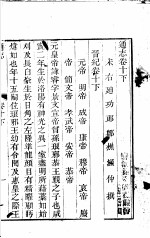 通志卷十下
宋右迪功郎鄭樵漁仲撰
晉紀卷十下
元帝 明帝 成帝 康帝 穆帝 哀帝 廢
帝 簡文帝 孝武帝 安帝 恭帝
元皇帝諱睿字景文宣帝曾孫琅邪恭王覲之子也咸
寧二年生於洛陽有神光之異一室盡明所藉藁如始
刈及長白毫生於日角之左隆準龍顏目有精曜顧眄
煒如也年十五嗣位琅邪王幼有令聞及惠皇之際王